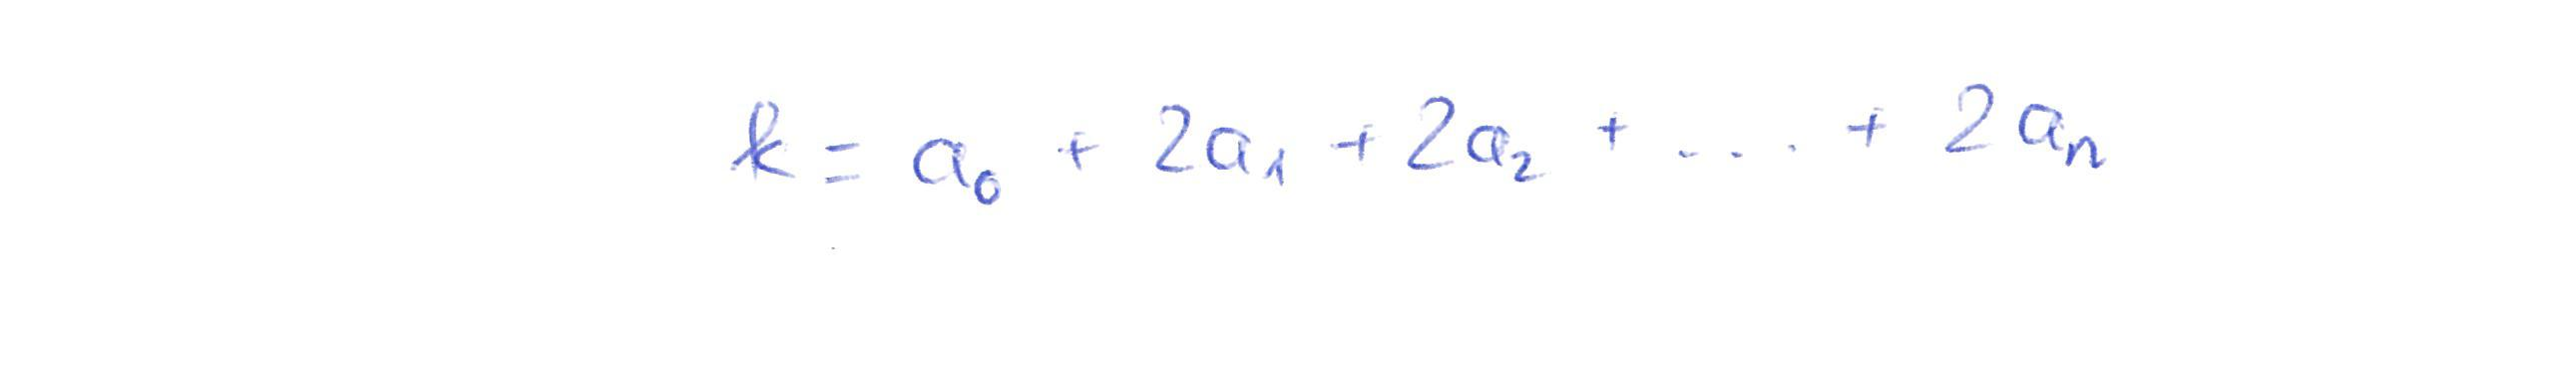 k = a₀ + 2a₁ + 2a₂ + .... + 2aₙ